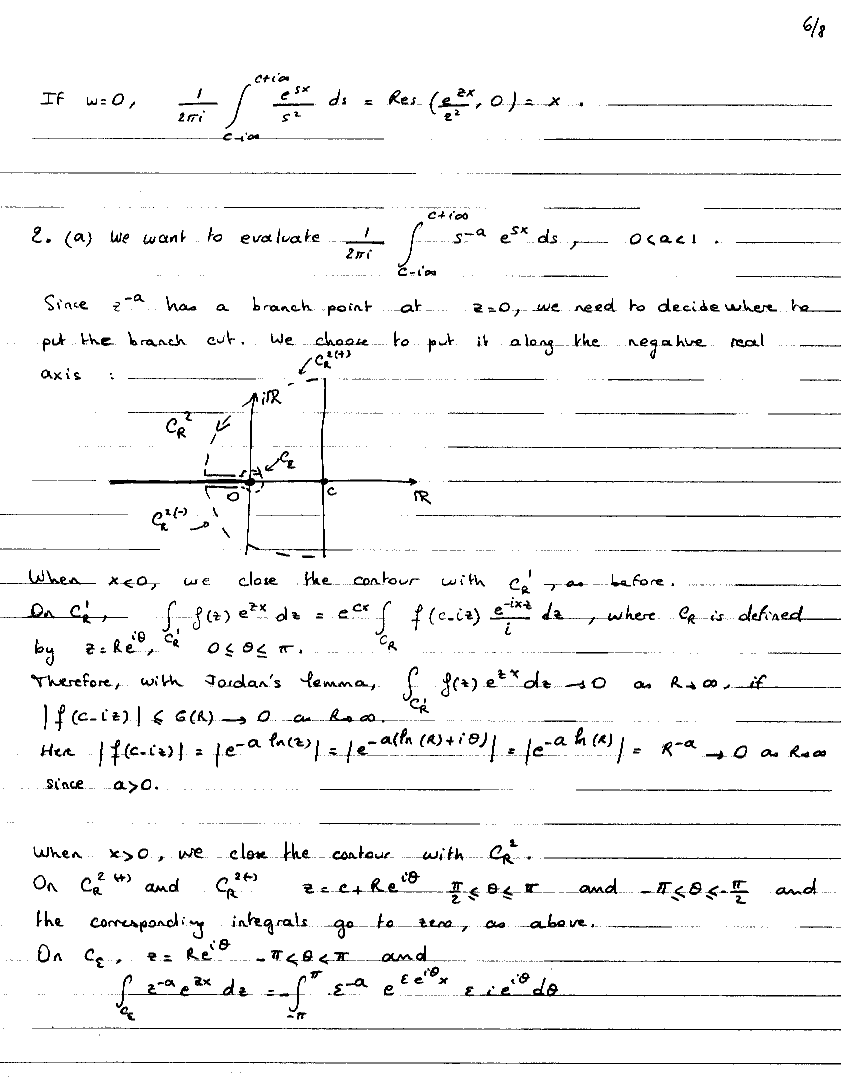 6/8
If w=0, \frac{1}{2πi} \int_{c-i∞}^{c+i∞} \frac{e^{sx}}{s^2} ds = Res (\frac{e^{zx}}{z^2}, 0) = x .
2. (a) We want to evaluate \frac{1}{2πi} \int_{c-i∞}^{c+i∞} s^{-a} e^{sx} ds , 0<a<1 .
Since z^{-a} has a branch point at z=0, we need to decide where to
put the branch cut. We choose to put it along the negative real
axis :
C_R^{2(+)}
iR
C_R^2
C_ε
O
C
R
C_R^{2(-)}
When x<0, we close the contour with C_R^1 , as before.
On C_R^1, \int_{C_R^1} f(z) e^{zx} dz = e^{cx} \int_{C_R} f(c-iz) \frac{e^{-ixz}}{i} dz , where C_R is defined
by z=Re^{iθ}, 0≤θ≤π.
Therefore, with Jordan's lemma, \int_{C_R^1} f(z) e^{zx} dz → 0 as R→∞, if
|f(c-iz)| ≤ G(R) → 0 as R→∞.
Here |f(c-iz)| = |e^{-a ln(z)}| = |e^{-a(ln(R)+iθ)}| = |e^{-a ln(R)}| = R^{-a} → 0 as R→∞
since a>0.
When x>0, we close the contour with C_R^2 .
On C_R^{2(+)} and C_R^{2(-)} z=c+Re^{iθ} \frac{π}{2}≤θ≤π and -π≤θ≤-\frac{π}{2} and
the corresponding integrals go to zero, as above.
On C_ε, z=Re^{iθ} -π<θ<π and
\int_{C_ε} z^{-a} e^{zx} dz = -\int_{-π}^{π} ε^{-a} e^{εe^{iθ}x} ε i e^{iθ} dθ